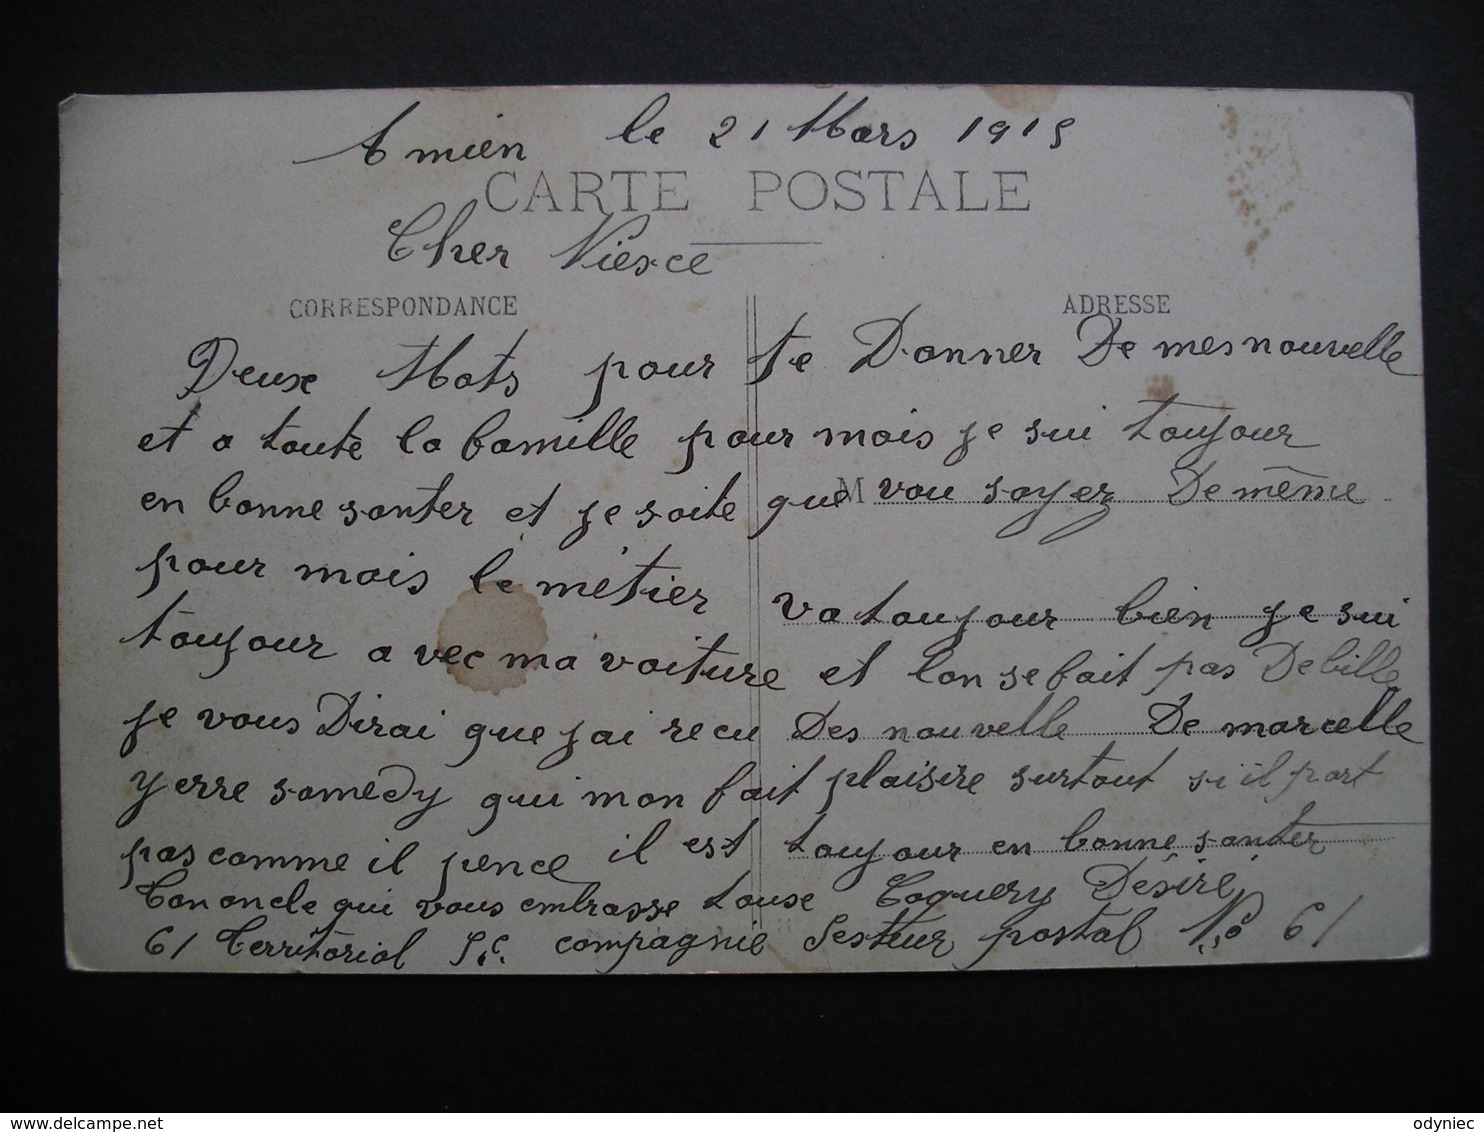 Amien le 21 Mars 1915
CARTE POSTALE
Cher Niesce
CORRESPONDANCE
ADRESSE
Deux Mots pour te Donner De mes nouvelle
et a toute la famille pour mois je sui toujour
en bonne santer et je soite que vou soyez De même
M
pour mois le métier va toujour bien je sui
toujour avec ma voiture et lon se fait pas De bille
je vous Dirai que jai recu Des nouvelle De marcelle
yerre samedy qui mon fait plaisire surtout si il part
pas comme il pence il est toujour en bonne santer
Ton oncle qui vous embrasse touse Coquery Désiré
61 Territorial 5e compagnie Secteur postal No 61
odyniec